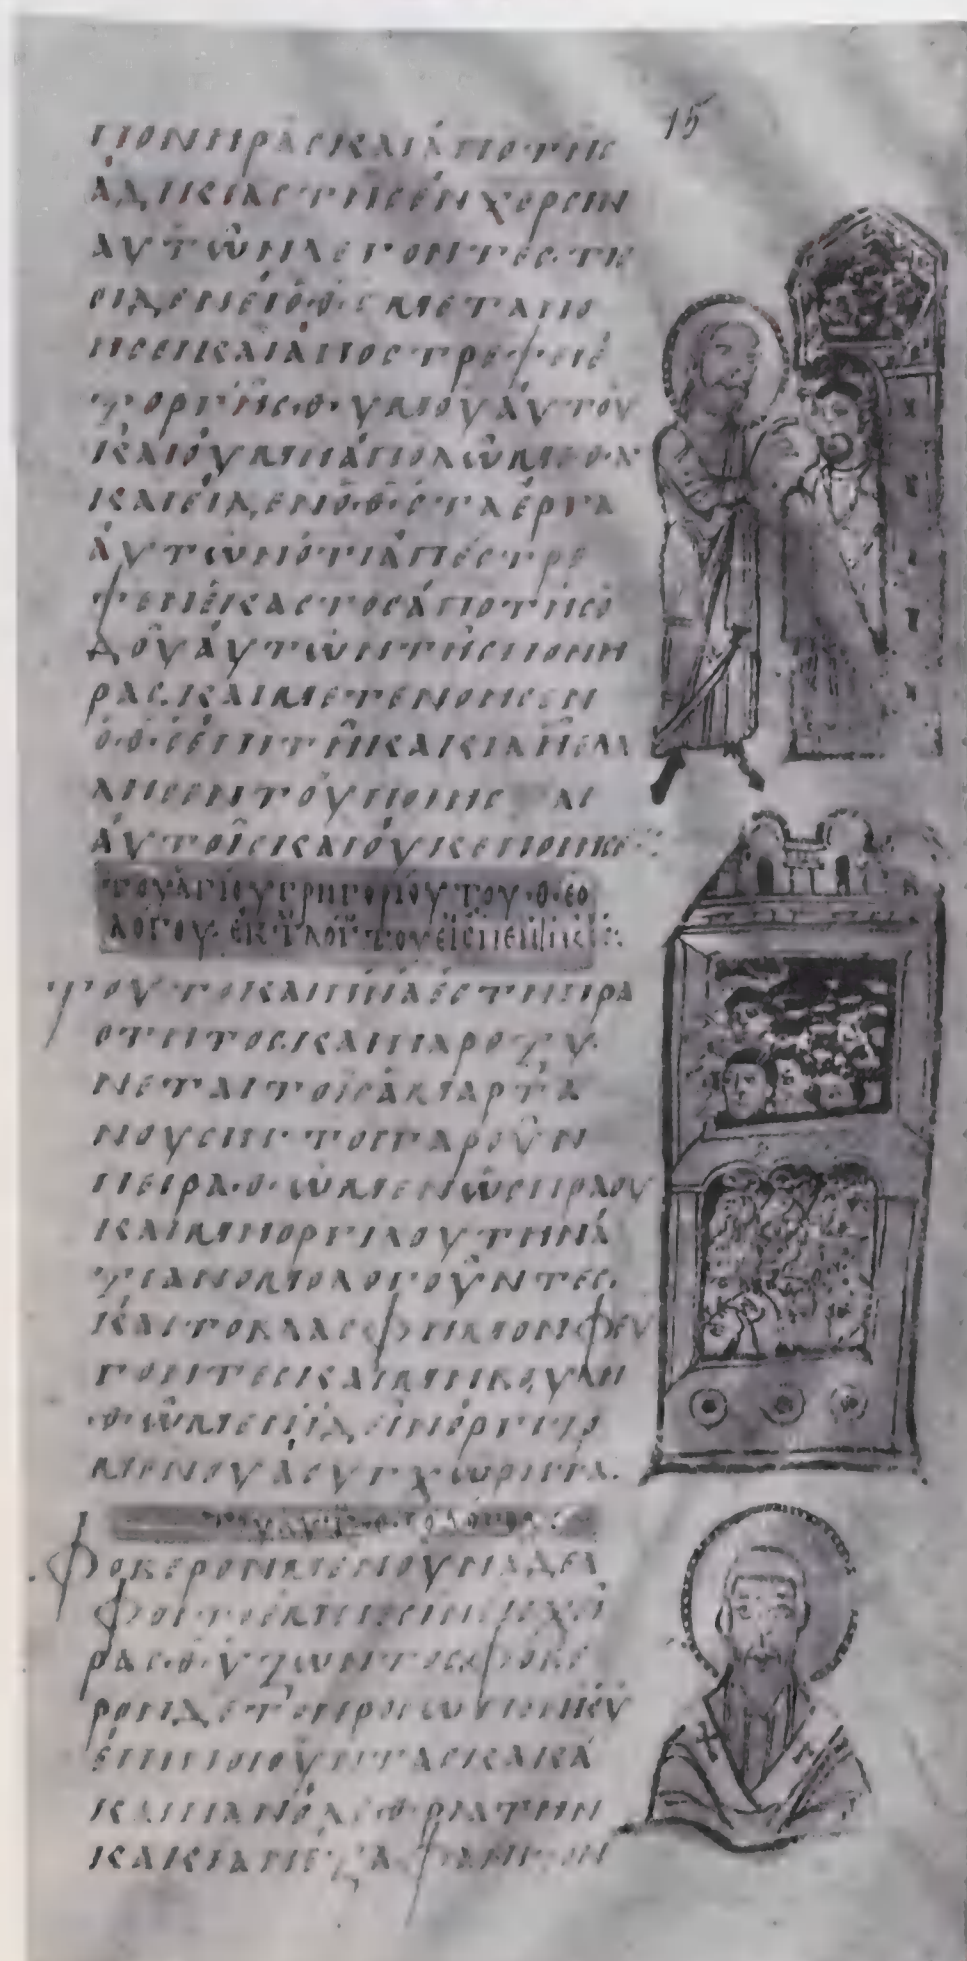 15
ΠΟΝΗΡΑΣ ΚΑΙ ἈΠΟ ΤΗΣ
ἈΔΙΚΙΑΣ ΤΗΣ ἘΝ ΧΕΡΣΙΝ
ΑΥΤῶΝ ΛΕΓΟΝΤΕΣ· ΤΙΣ
ΟΙΔΕΝ ΕΙ Ὁ ΘΣ ΜΕΤΑΝΟ
ΗΣΕΙ ΚΑΙ ἈΠΟΣΤΡΕΨΕΙ Ἐ
ΞΟΡΓῆΣ ΘΥΜΟΥ ἈΥΤΟΥ
ΚΑΙ ΟΥ ΜΗ ἈΠΟΛώΜΕΘΑ
ΚΑΙ ΕἸΔΕΝ Ὁ ΘΣ ΤΑ ἜΡΓΑ
ἈΥΤῶΝ ὍΤΙ ἈΠΕΣΤΡΕ
ΨΕΝ ἝΚΑΣΤΟΣ ἈΠΟ ΤΗΣ Ὁ
ΔΟῦ ἈΥΤῶΝ ΤΗΣ ΠΟΝΗ
ΡΑΣ· ΚΑΙ ΜΕΤΕΝΟΗΣΕΝ
Ὁ ΘΣ ἘΠΙ ΤῆΚΑΚΙΑ ῆ ΕΛΑ
ΛΗΣΕΝ ΤΟΥ ΠΟΙΗΣΑΙ
ἈΥΤΟῖΣ ΚΑΙ ΟΥΚ ΕΠΟΙΗΣΕΝ
ΤΟΥ ἉΓΙΟΥ ΓΡΗΓΟΡΙΟΥ ΤΟΥ ΘΕΟ
ΛΟΓΟΥ· ἘΚ Τ ΛΟΓ ΤΟΥ ΕἸΣ
ΤΟΥΤΟ ΚΑΙ ΠΝΑ ἘΣΤΙ ΠΡΑ
ΟΤΗΤΟΣ· ΚΑΙ ΠΑΡΟΞΥ
ΝΕΤΑΙ ΤΟΙΣ ἉΜΑΡΤΑ
ΝΟΥΣΙΝ· ΤΟΙΓΑΡΟΥΝ
ΠΕΙΡΑΘῶΜΕΝ ΩΣ ΠΡΑΟΥ
ΚΑΙ ΜΗ ΟΡΓΙΛΟΥ ΤΗΝ Ἀ
ΞΙΑΝ ΟΜΟΛΟΓΟΥΝΤΕΣ·
ΚΑΙ ΤΟ ΒΛΑΣΦΗΜΟΝ ΦΕΥ
ΓΟΝΤΕΣ ΚΑΙ ΜΗ ΒΟΥΛΗ
ΘῶΜΕΝ ἸΔΕΙΝ ὈΡΓΙΖΟ
ΜΕΝΟΥ ἈΣΥΓΧΩΡΗΤΑ·
ΦΟΒΕΡΟΝ ΜΕΝ ΟΥΝ ἈΔΕΛ
ΦΟΙ ΤΟ ἘΜΠΕΣΕΙΝ ΕΙΣ ΧΕΙ
ΡΑΣ ΘΥ ΖΩΝΤΟΣ· ΦΟΒΕ
ΡΟΝ ΔΕ ΤΟ ΠΡΟΣΩΠΟΝ ΚΥ
ἘΠΙ ΠΟΙΟΥΝΤΑΣ ΚΑΚΑ
ΚΑΙ ΠΑΝΩΛΕΘΡΙΑ ΤΗΝ
ΚΑΚΙΑΝ ἘΞΑΦΑΝΙΖΟΝ